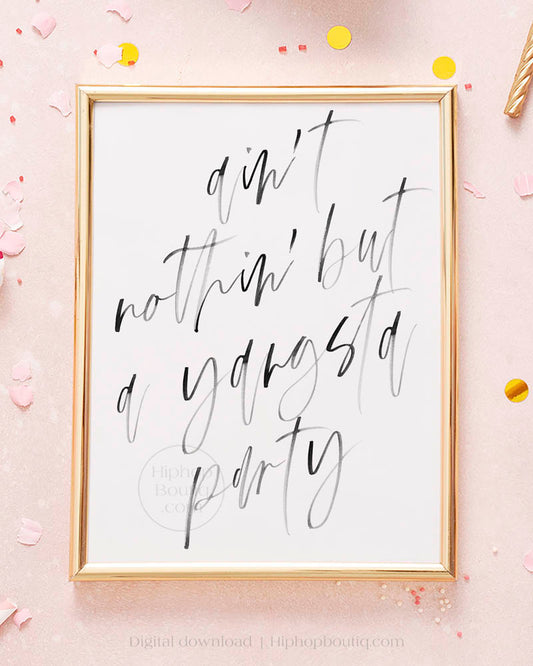 ain't
nothin' but
a gangsta
party
Hiphop
Boutiq
.com
Digital download | Hiphopboutiq.com